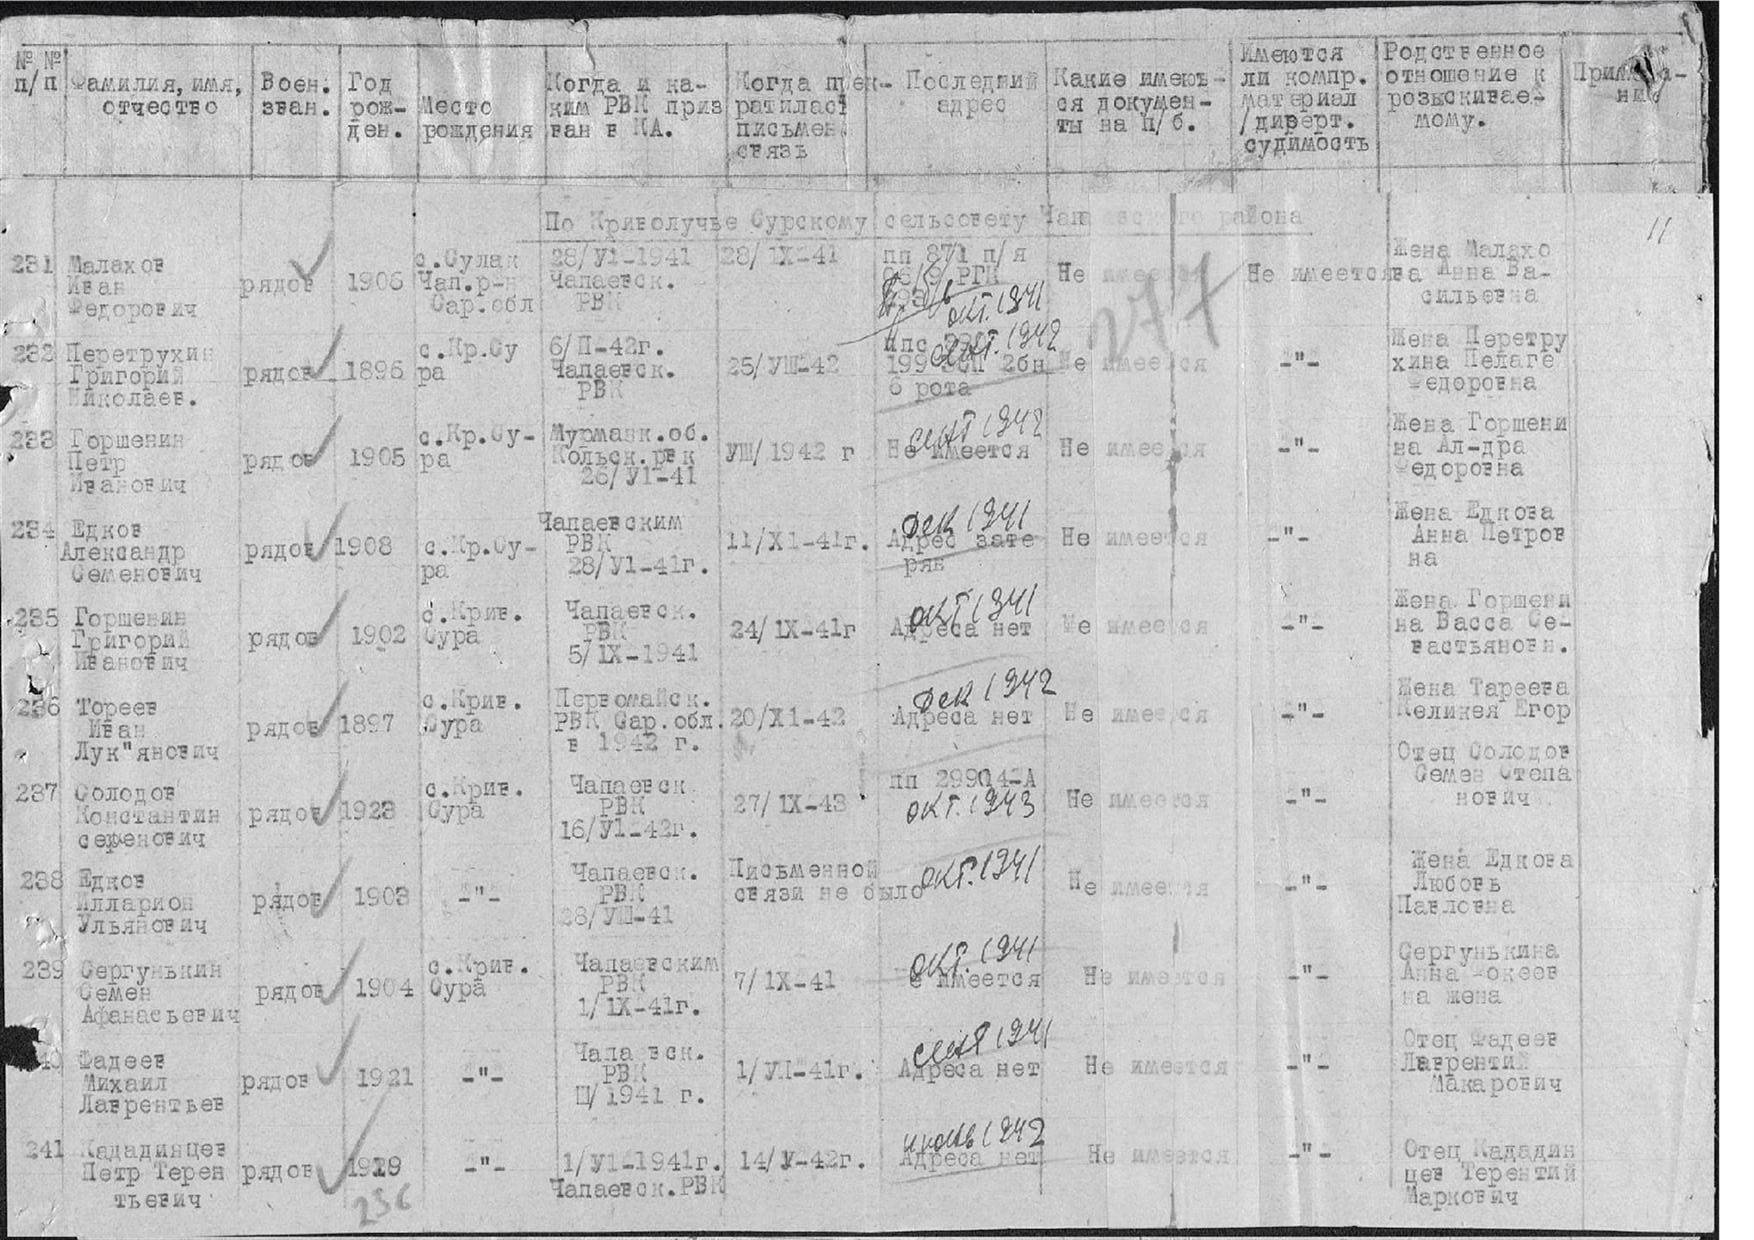 № №
п/п
Фамилия, имя,
отчество
Воен.
зван.
Год
рож-
ден.
Место
рождения
Когда и ка-
ким РВК приз
ван в КА.
Когда прек-
ратилась
письмен.
связь
Последний
адрес
Какие имеют-
ся докумен-
ты на п/б.
Имеются
ли компр.
материал
/дизерт.
судимость
Родственное
отношение к
розыскивае-
мому.
Примеча-
ние
По Криволучье Сурскому сельсовету Чапаевского района
11
231 Малахов
Иван
Федорович
рядов
1906
с.Сулак
Чап.р-н
Сар.обл
28/У1-1941
Чапаевск.
РВК
28/1Х-41
пп 871 п/я
окт.1941
Не имеется
Не имеется
Жена Малахо
ва Анна Ва-
сильевна
277
232 Перетрухин
Григорий
Николаев.
рядов
1896
с.Кр.Су
ра
6/П-42г.
Чапаевск.
РВК
25/УШ-42
199 2бн
6 рота
1942
Не имеется
-"-
Жена Перетру
хина Пелаге
Федоровна
233 Горшенин
Петр
Иванович
рядов
1905
с.Кр.Су-
ра
Мурманк.об.
Кольск.рвк
26/У1-41
УШ/1942 г
сент 1942
Не имеется
Не имеется
-"-
Жена Горшени
на Ал-дра
Федоровна
234 Едков
Александр
Семенович
рядов
1908
с.Кр.Су-
ра
Чапаевским
РВК
28/У1-41г.
11/Х1-41г.
дек 1941
Адрес зате
рян
Не имеется
-"-
Жена Едкова
Анна Петров
на
235 Горшенин
Григорий
Иванович
рядов
1902
с.Крив.
Сура
Чапаевск.
РВК
5/1Х-1941
24/1Х-41г
окт 1941
Адреса нет
Не имеется
-"-
Жена Горшени
на Васса Се-
вастьяновн.
236 Тореев
Иван
Лук"янович
рядов
1897
с.Крив.
Сура
Первомайск.
РВК Сар.обл.
в 1942 г.
20/Х1-42
дек 1942
Адреса нет
Не имеется
-"-
Жена Тареева
Келикея Егор
237 Солодов
Константин
семенович
рядов
1923
с.Крив.
Сура
Чапаевск
РВК
16/У1-42г.
27/1Х-43
пп 29904-А
окт.1943
Не имеется
-"-
Отец Солодов
Семен Степа
нович
238 Едков
Илларион
Ульянович
рядов
1903
-"-
Чапаевск.
РВК
28/УШ-41
Письменной
связи не было
окт.1941
Не имеется
-"-
Жена Едкова
Любовь
Павловна
239 Сергунькин
Семен
Афанасьевич
рядов
1904
с.Крив.
Сура
Чапаевским
РВК
1/1Х-41г.
7/1Х-41
окт.1941
е имеется
Не имеется
-"-
Сергунькина
Анна -океев
на жена
40 Фадеев
Михаил
Лаврентьев
рядов
1921
-"-
Чапа вск.
РВК
Ш/1941 г.
1/УП-41г.
сент 1941
Адреса нет
Не имеется
-"-
Отец Фадеев
Лаврентий
Макарович
241 Кададинцев
Петр Терен
тьевич
рядов
1919
-"-
1/У1-1941г.
Чапаевск.РВК
14/У-42г.
июнь 1942
Адреса нет
Не имеется
-"-
Отец Кададин
цев Терентий
Маркович
236